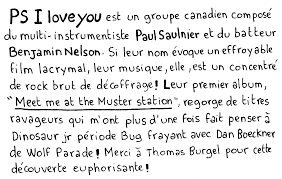 PS I love you est un groupe canadien composé
du multi-instrumentiste Paul Saulnier et du batteur
Benjamin Nelson. Si leur nom évoque un effroyable
film lacrymal, leur musique, elle, est un concentré
de rock brut de décoffrage! Leur premier album,
"Meet me at the Muster station", regorge de titres
ravageurs qui m'ont plus d'une fois fait penser à
Dinosaur jr période Bug frayant avec Dan Boeckner
de Wolf Parade! Merci à Thomas Burgel pour cette
découverte euphorisante!